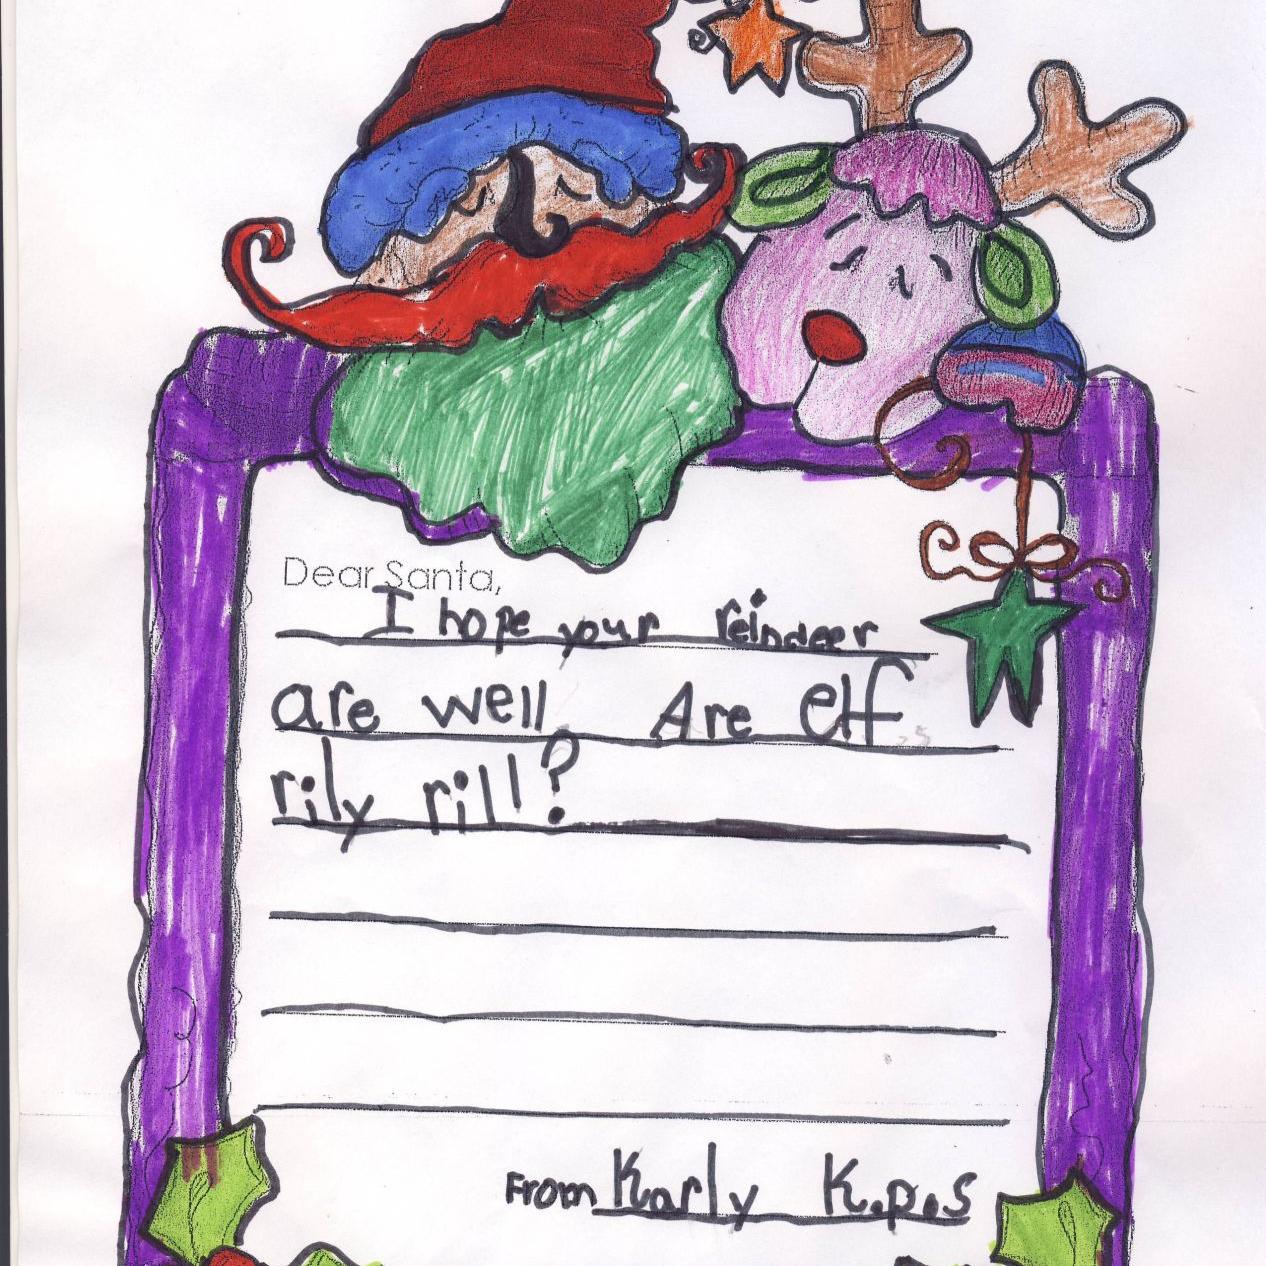 Dear Santa,
I hope your reindeer
are well Are elf
rily rill?
From Karly K.p.s